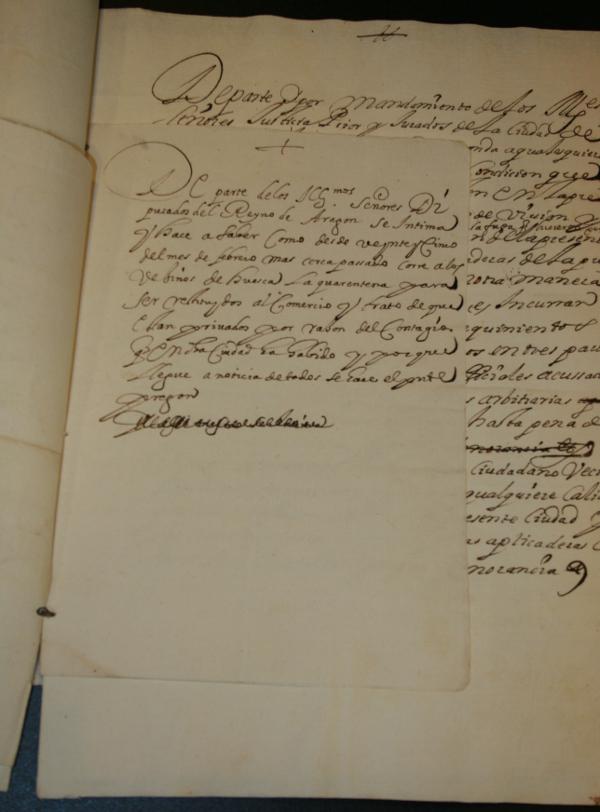 De parte y por mandamiento de los Ill.es
señores Justicia Prior y Jurados de la Ciudad de
De parte de los Ill.mos Señores Di
putados del Reyno de Aragon se Intima
y hace a saber como desde veynte y cinco
del mes de febrero mas cerca passado corre a los
vecinos de huesca la quarentena para
ser restituydos al Comercio y trato de que
estan privados por raçon del Contagio
q en dha Ciudad ha habido y porque
llegue a noticia de todos se hace el pnte
pregon
onda a qualesquiere
Condicion que
en la pre
de vision y
de la present
deras de la pu
otra manera
es Incurran
quinientos
os en tres par
ficiales acussad
s arbitrarias
hasta pena de
Ciudadano Veci
qualquiere Cali
esente Ciudad y
as aplicaderas
norancia